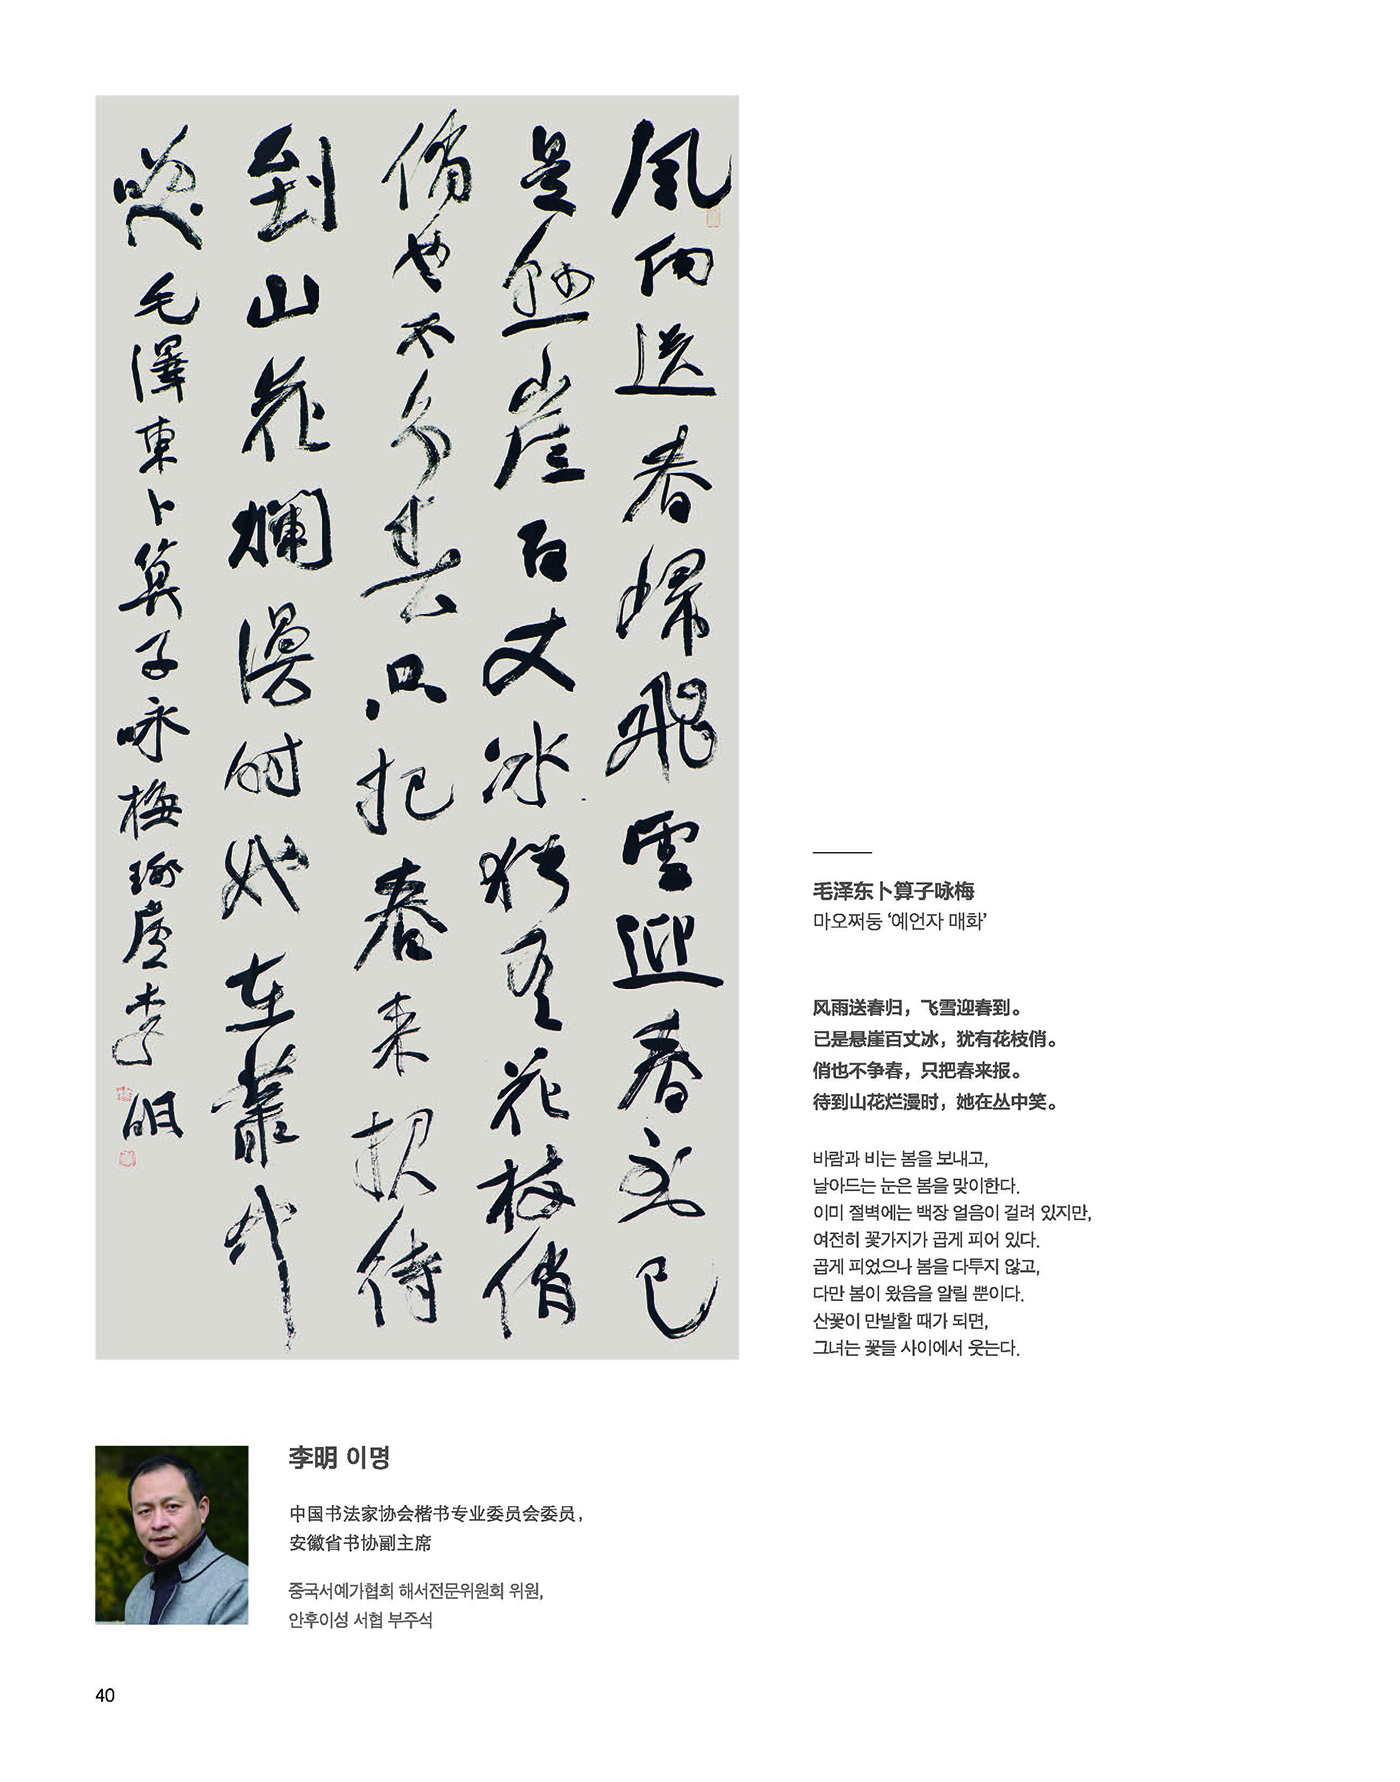 風雨送春歸飛雪迎春到已
是懸崖百丈冰猶有花枝俏
俏也不爭春只把春來報待
到山花爛漫時她在叢中
笑毛澤東卜算子咏梅
李明
毛泽东卜算子咏梅
마오쩌둥 ‘예언자 매화’
风雨送春归，飞雪迎春到。
已是悬崖百丈冰，犹有花枝俏。
俏也不争春，只把春来报。
待到山花烂漫时，她在丛中笑。
바람과 비는 봄을 보내고,
날아드는 눈은 봄을 맞이한다.
이미 절벽에는 백장 얼음이 걸려 있지만,
여전히 꽃가지가 곱게 피어 있다.
곱게 피었으나 봄을 다투지 않고,
다만 봄이 왔음을 알릴 뿐이다.
산꽃이 만발할 때가 되면,
그녀는 꽃들 사이에서 웃는다.
李明 이명
中国书法家协会楷书专业委员会委员，
安徽省书协副主席
중국서예가협회 해서전문위원회 위원,
안후이성 서협 부주석
40